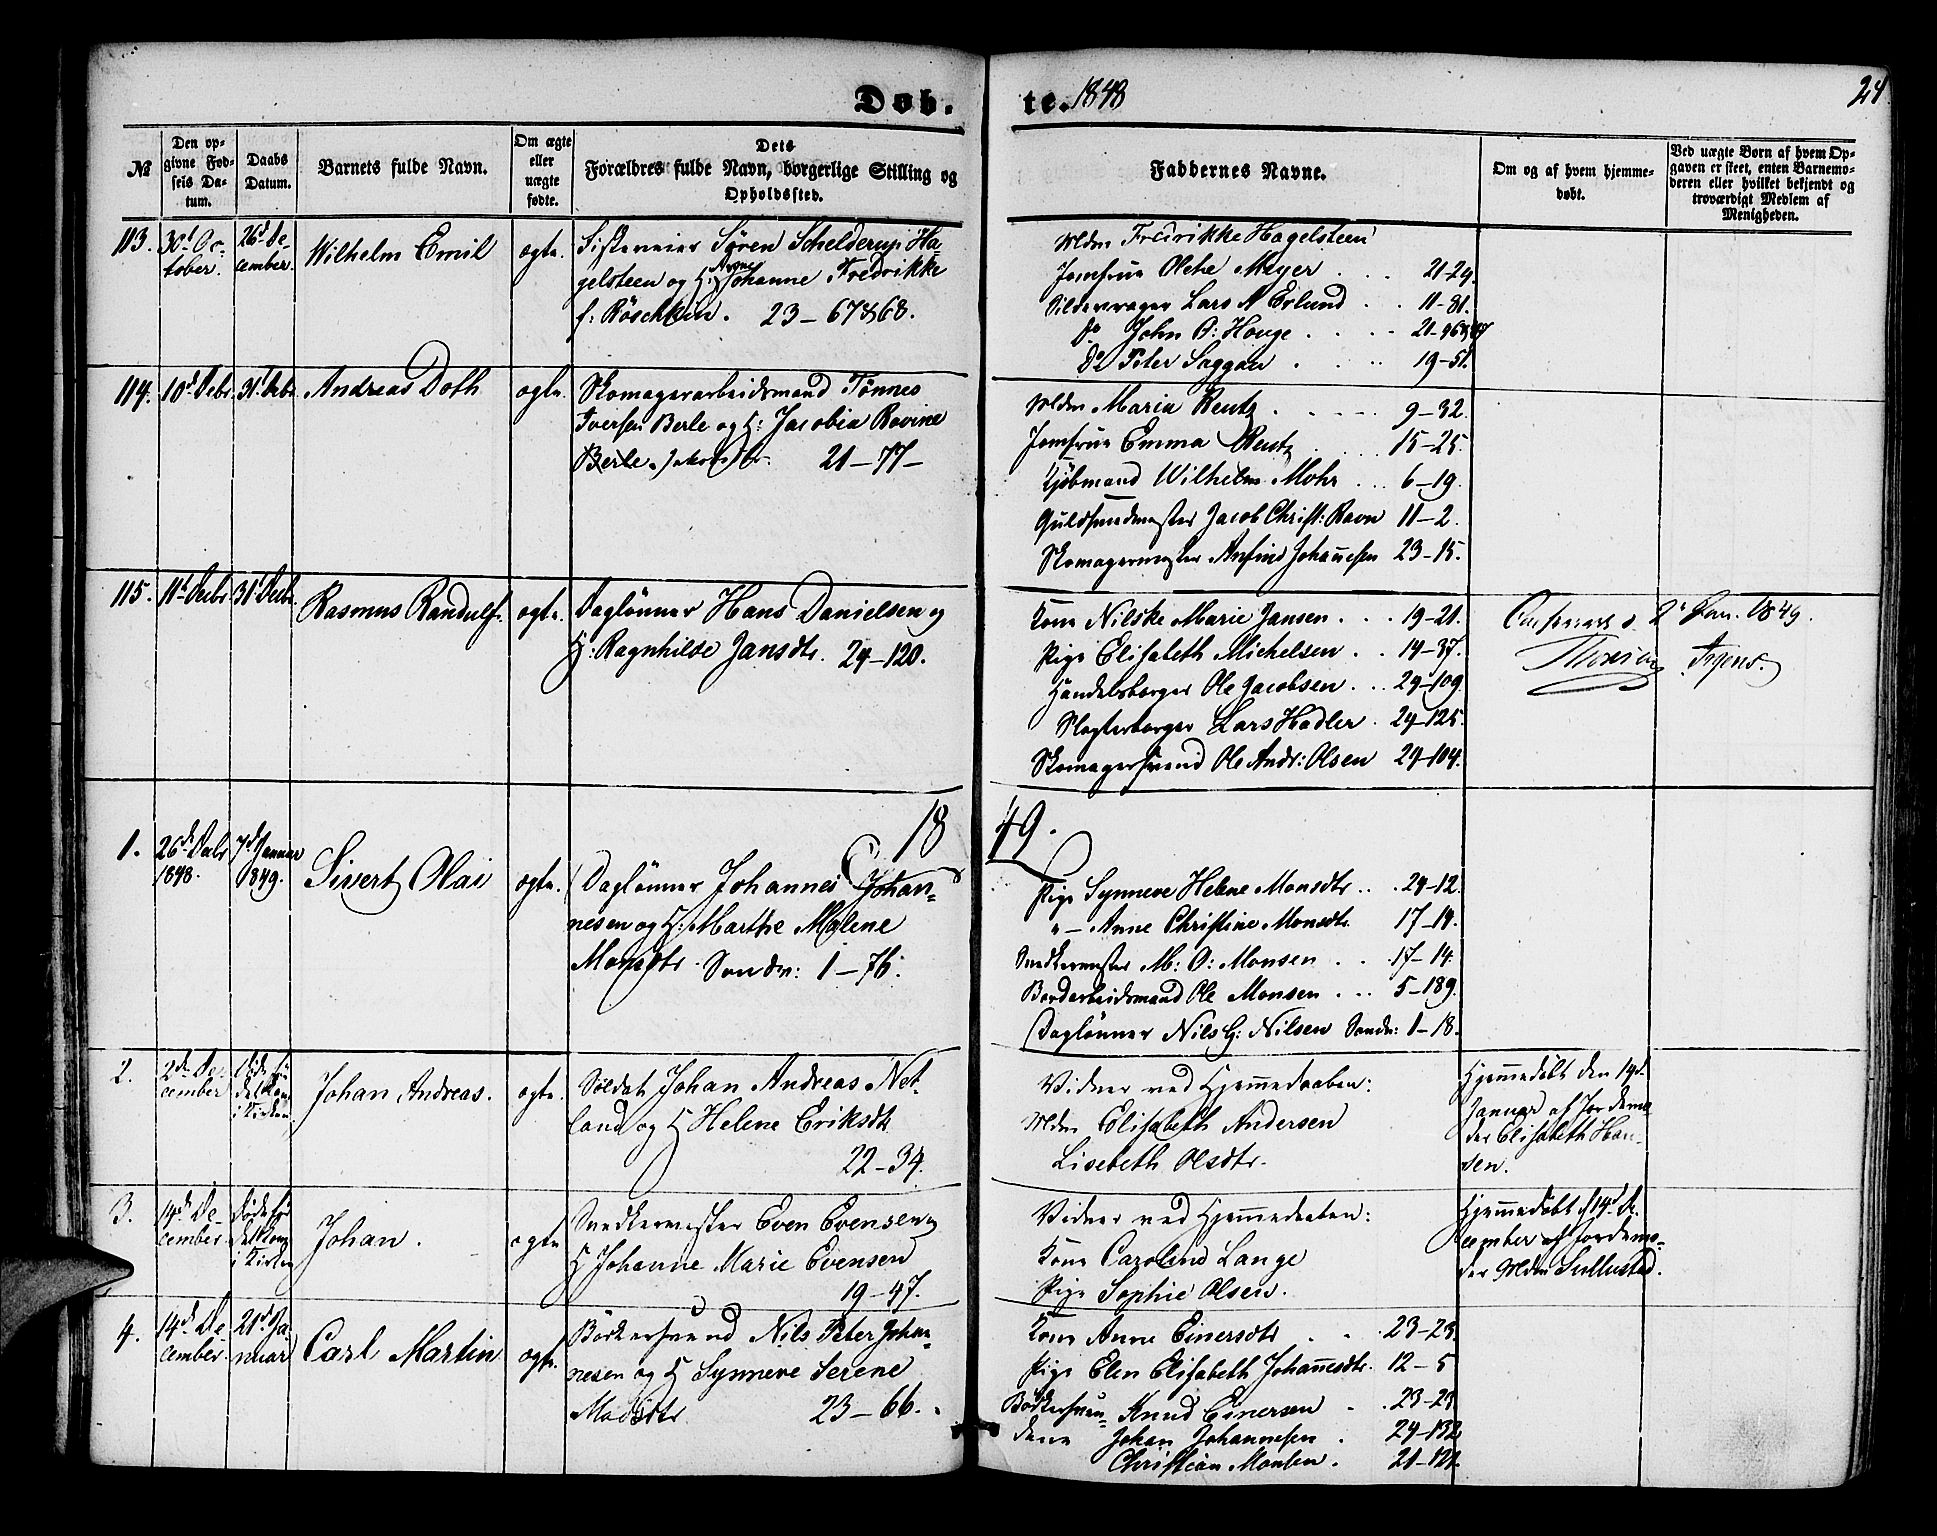 Døb. te. 1848 24
№
Den op-
givne Fød-
sels Da-
tum.
Daabs
Datum.
Barnets fulde Navn.
Om ægte
eller
uægte
fødte.
Dets
Forældres fulde Navn, borgerlige Stilling og
Opholdssted.
Faddernes Navne.
Om og af hvem hjemme-
døbt.
Ved uægte Børn af hvem Op-
gaven er skeet, enten Barnemo-
deren eller hvilket bekjendt og
troværdigt Medlem af
Menigheden.
113.
30t Oc-
tober.
26d De-
cember.
Wilhelm Emil
ægte.
Søren Schelderup Ha-
gelsteen og H: Anne Johanne Fredrikke
f: 23 – 67&68.
Md Fredrikke Hagelsteen
Jomfrue Olehe Meyer . . . . 21-29.
Lars N Erlund . . 11-81.
Do John O: Houge . . . . 21-96&97
Do Peter Saggau . . . 19-51.
114.
10d Debr.
31t Debr
Andreas Doth
ægte.
Skomagerarbeidsmand Tønnes
Iversen Berle og H: Jacobia Ravine
Berle. 21 – 77 –
Md Maria Rentz . . . . . 9-32.
Jomfrue Emma Rentz . . . . 15-25.
Kjøbmand Wilhelm Mohr . . . 6-19.
Guldsmedmester Jacob Christ: Ravn 11-2.
Skomagermester Anfind Johannesen 23-15.
115.
11t Decbr
31t Decbr.
Rasmus Randulf.
ægte.
Daglønner Hans Danielsen og
H: Ragnhilde Jansdtr. 24-120.
Kone Nilske Marie Jansen . . . 19-21.
Pige Elisabeth Michelsen . . 14-37.
Handelsborger Ole Jacobsen . . . 24-109.
Slagterborger Lars Hadler . 24-125.
Skomagersvend Ole Andr: Olsen 24-104.
2 Jan. 1849.
1849.
1.
26de Decbr
1848.
7de Januar
1849.
Sivert Olai
ægte.
Daglønner Johannes Johan-
nesen og H: Marthe Malene
Monsdtr. Sandv: 1 – 76.
Pige Synneve Helene Monsdtr . . . 24-12.
" – Anne Christine Monsdtr 17-14.
Snedkermester M: O: Monsen . . . 17-14.
Bordarbeidsmand Ole Monsen . . . 5-189.
Daglønner Nils G: Nilsen Sandv: 1-18.
2.
2de De-
cember
Johan Andreas.
ægte.
Soldat Johan Andreas Net-
land og H Helene Eriksdtr
22 – 34.
Vidner ved Hjemmedaaben:
Md Elisabeth Andersen
Lisebeth Olsdtr.
Hjemmedøbt den 14d
Januar af Jordemo-
der Elisabeth Han-
sen.
3.
14de De-
cember.
Døde før
det kom
i Kirken
Johan.
ægte
Snedkermester Even Evensen og
H Johanne Marie Evensen
19 – 47.
Vidner ved Hjemmedaaben:
Kone Carolind Lange
Pige Sophie Olsen.
Hjemmedøbt d 14d De-
cember af Jordemo-
der Md Sellestad.
4.
14de De-
cember.
21de Ja-
nuar
Carl Martin
ægte.
Bødkersvend Nils Peter Johan-
nesen og H Synneve Serene
Madsdtr 23 – 66.
Kone Anne Einersdtr . . . 23-23.
Pige Elen Elisabeth Johannesdtr. 12-5
Bødkersven-
dene Knud Einersen . . 23-23
Johan Johannesen . 24-132.
Christian Monsen . 21-121.